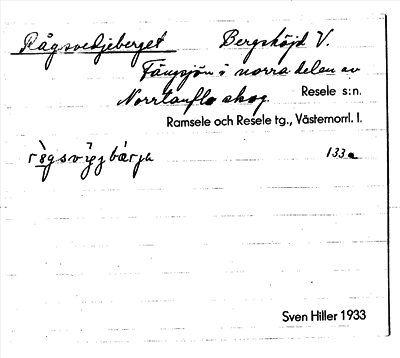 Rågsvedjeberget Bergshöjd V.
Tängsjön i norra delen av
Norrtanflo skog. Resele s:n.
Ramsele och Resele tg., Västernorrl. l.
133a
Sven Hiller 1933